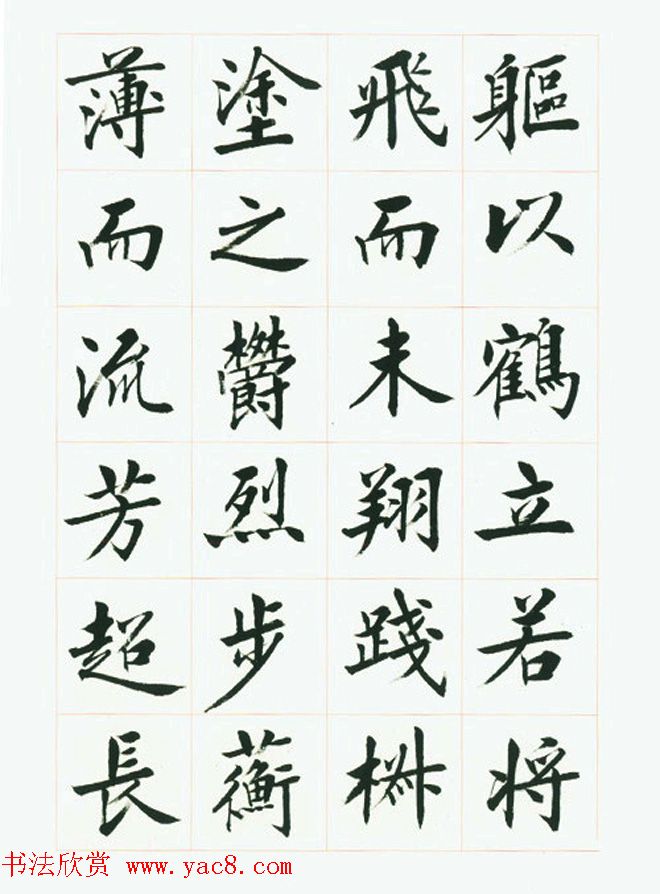 軀以鶴立若将
飛而未翔踐椒
塗之欝烈步蘅
薄而流芳超長
书法欣赏 www.yac8.com